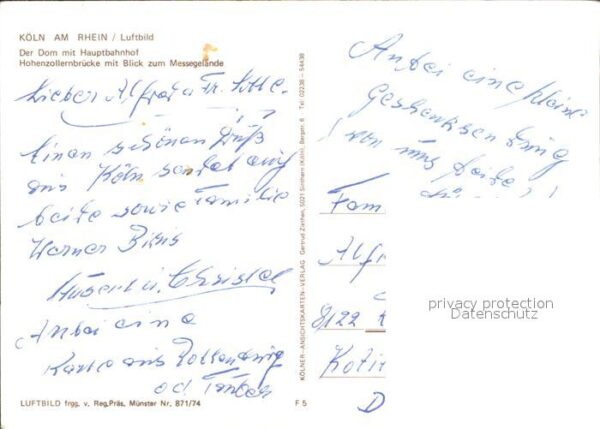 KÖLN AM RHEIN / Luftbild
Der Dom mit Hauptbahnhof
Hohenzollernbrücke mit Blick zum Messegelände
Lieber Alfred u. Fr.
Einen schönen Gruß
aus Köln sendet euch
beide sowie Familie
Werner
Hubert u. Christel
Anbei eine
Karte aus
LUFTBILD frgg. v. Reg.Präs. Münster Nr. 871/74
F 5
KÖLNER-ANSICHTSKARTEN-VERLAG Gertrud Ziethen, 5021 Sinthern (Köln), Bergstr. 6 Tel. 02238 - 54438
Anbei eine kleine
Geschenksendung
von uns beide
Fam
Alf
8122
D
privacy protection
Datenschutz